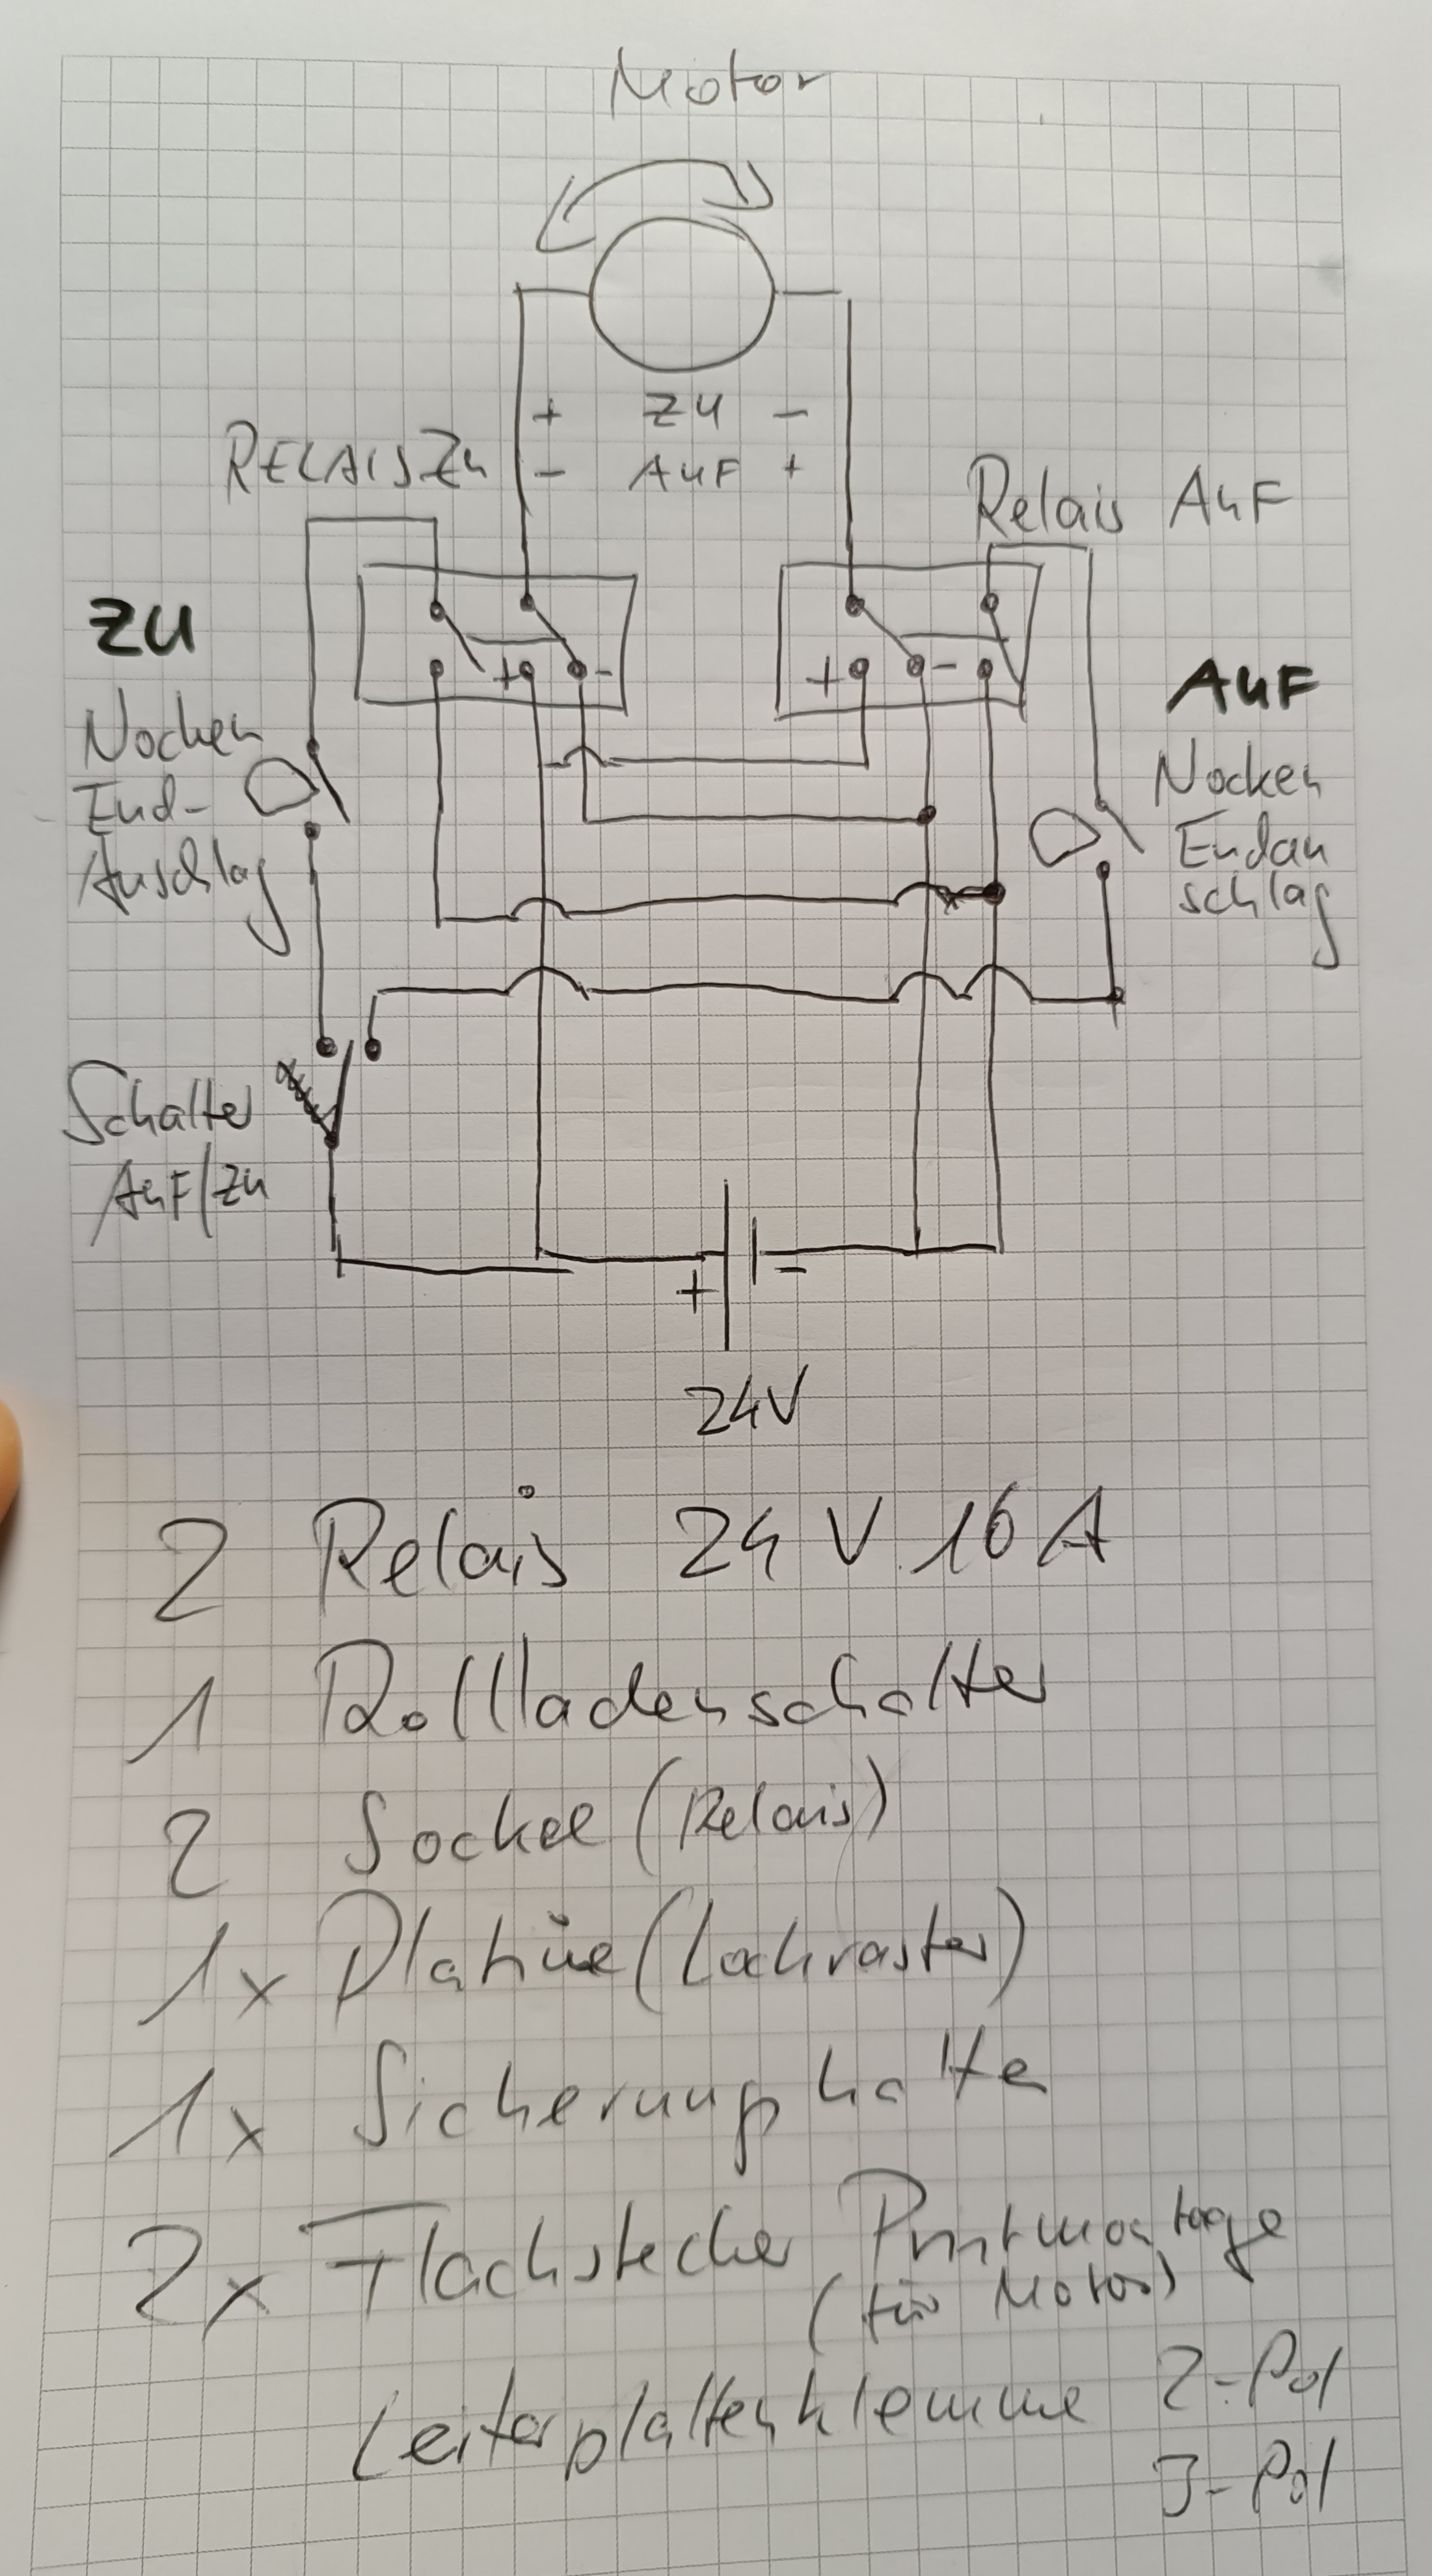 Motor
+ ZU -
RELAIS Zu - AUF +
Relais AuF
ZU
+ -
+ -
AuF
Nocken
End-
Anschlag
Nocken
Endan
schlag
Schalter
AuF/Zu
+ -
24V
2 Relais 24 V 16 A
1 Rollladenschalter
2 Sockel (Relais)
1x Platine (Lochraster)
1x Sicherunghalter
2x Flachstecker Printmontage
(für Motor)
Leiterplattenklemme 2-Pol
3-Pol